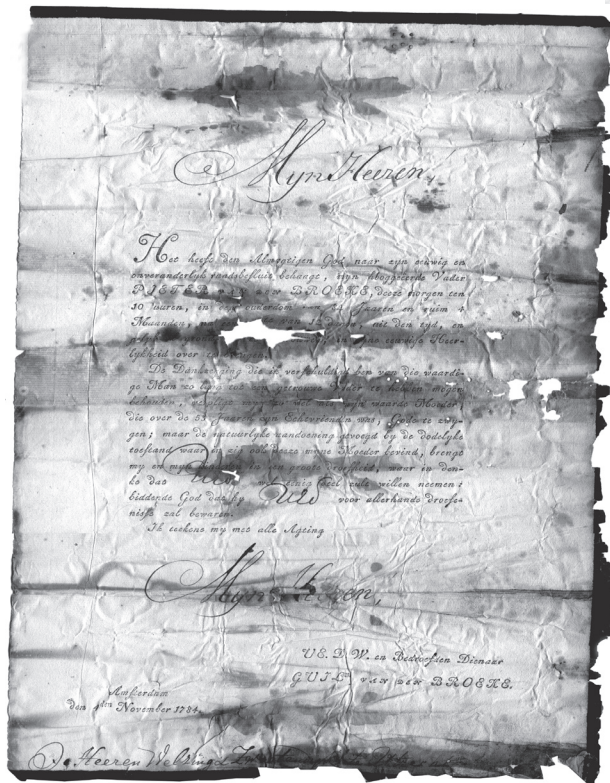 Myn Heeren,
Het heeft den Almagtigen God, naar zijn eeuwig en
onveranderlyk raadsbesluit behaagt, mijn geliefde Vader
PIETER VAN DEN BROEKE, deeze morgen ten
10 uuren, in den ouderdom van Jaaren en ruim 4
Maanden, uit den tyd, en
eeuwige Heer-
lykheid over te brengen.
De Dankzegging die ik verschuldigt ben van die waardi-
ge Man zo lang tot een getrouwe Vader te hebben mogen
behouden, waarde Moeder,
die over de 53 Jaaren zyn Echtvriendin was, Gode te zwy-
gen; maar de natuurlyke aandoening gevoegd by de dodelyke
toestand waar in zig ook deeze myne Moeder bevind, brengt
my en myn in een groote droefheid, waar in den-
ke dat Uwe wel eenig deel zult willen neemen:
biddende God dat hy Uwe voor allerhande droefe-
nisse zal bewaren.
Ik teekene my met alle Agting
Myne Heeren,
UE. D. W. en Bedroefden Dienaar
GUILM VAN DEN BROEKE.
Amsterdam
den 4den November 1784.
De Heeren Welsing